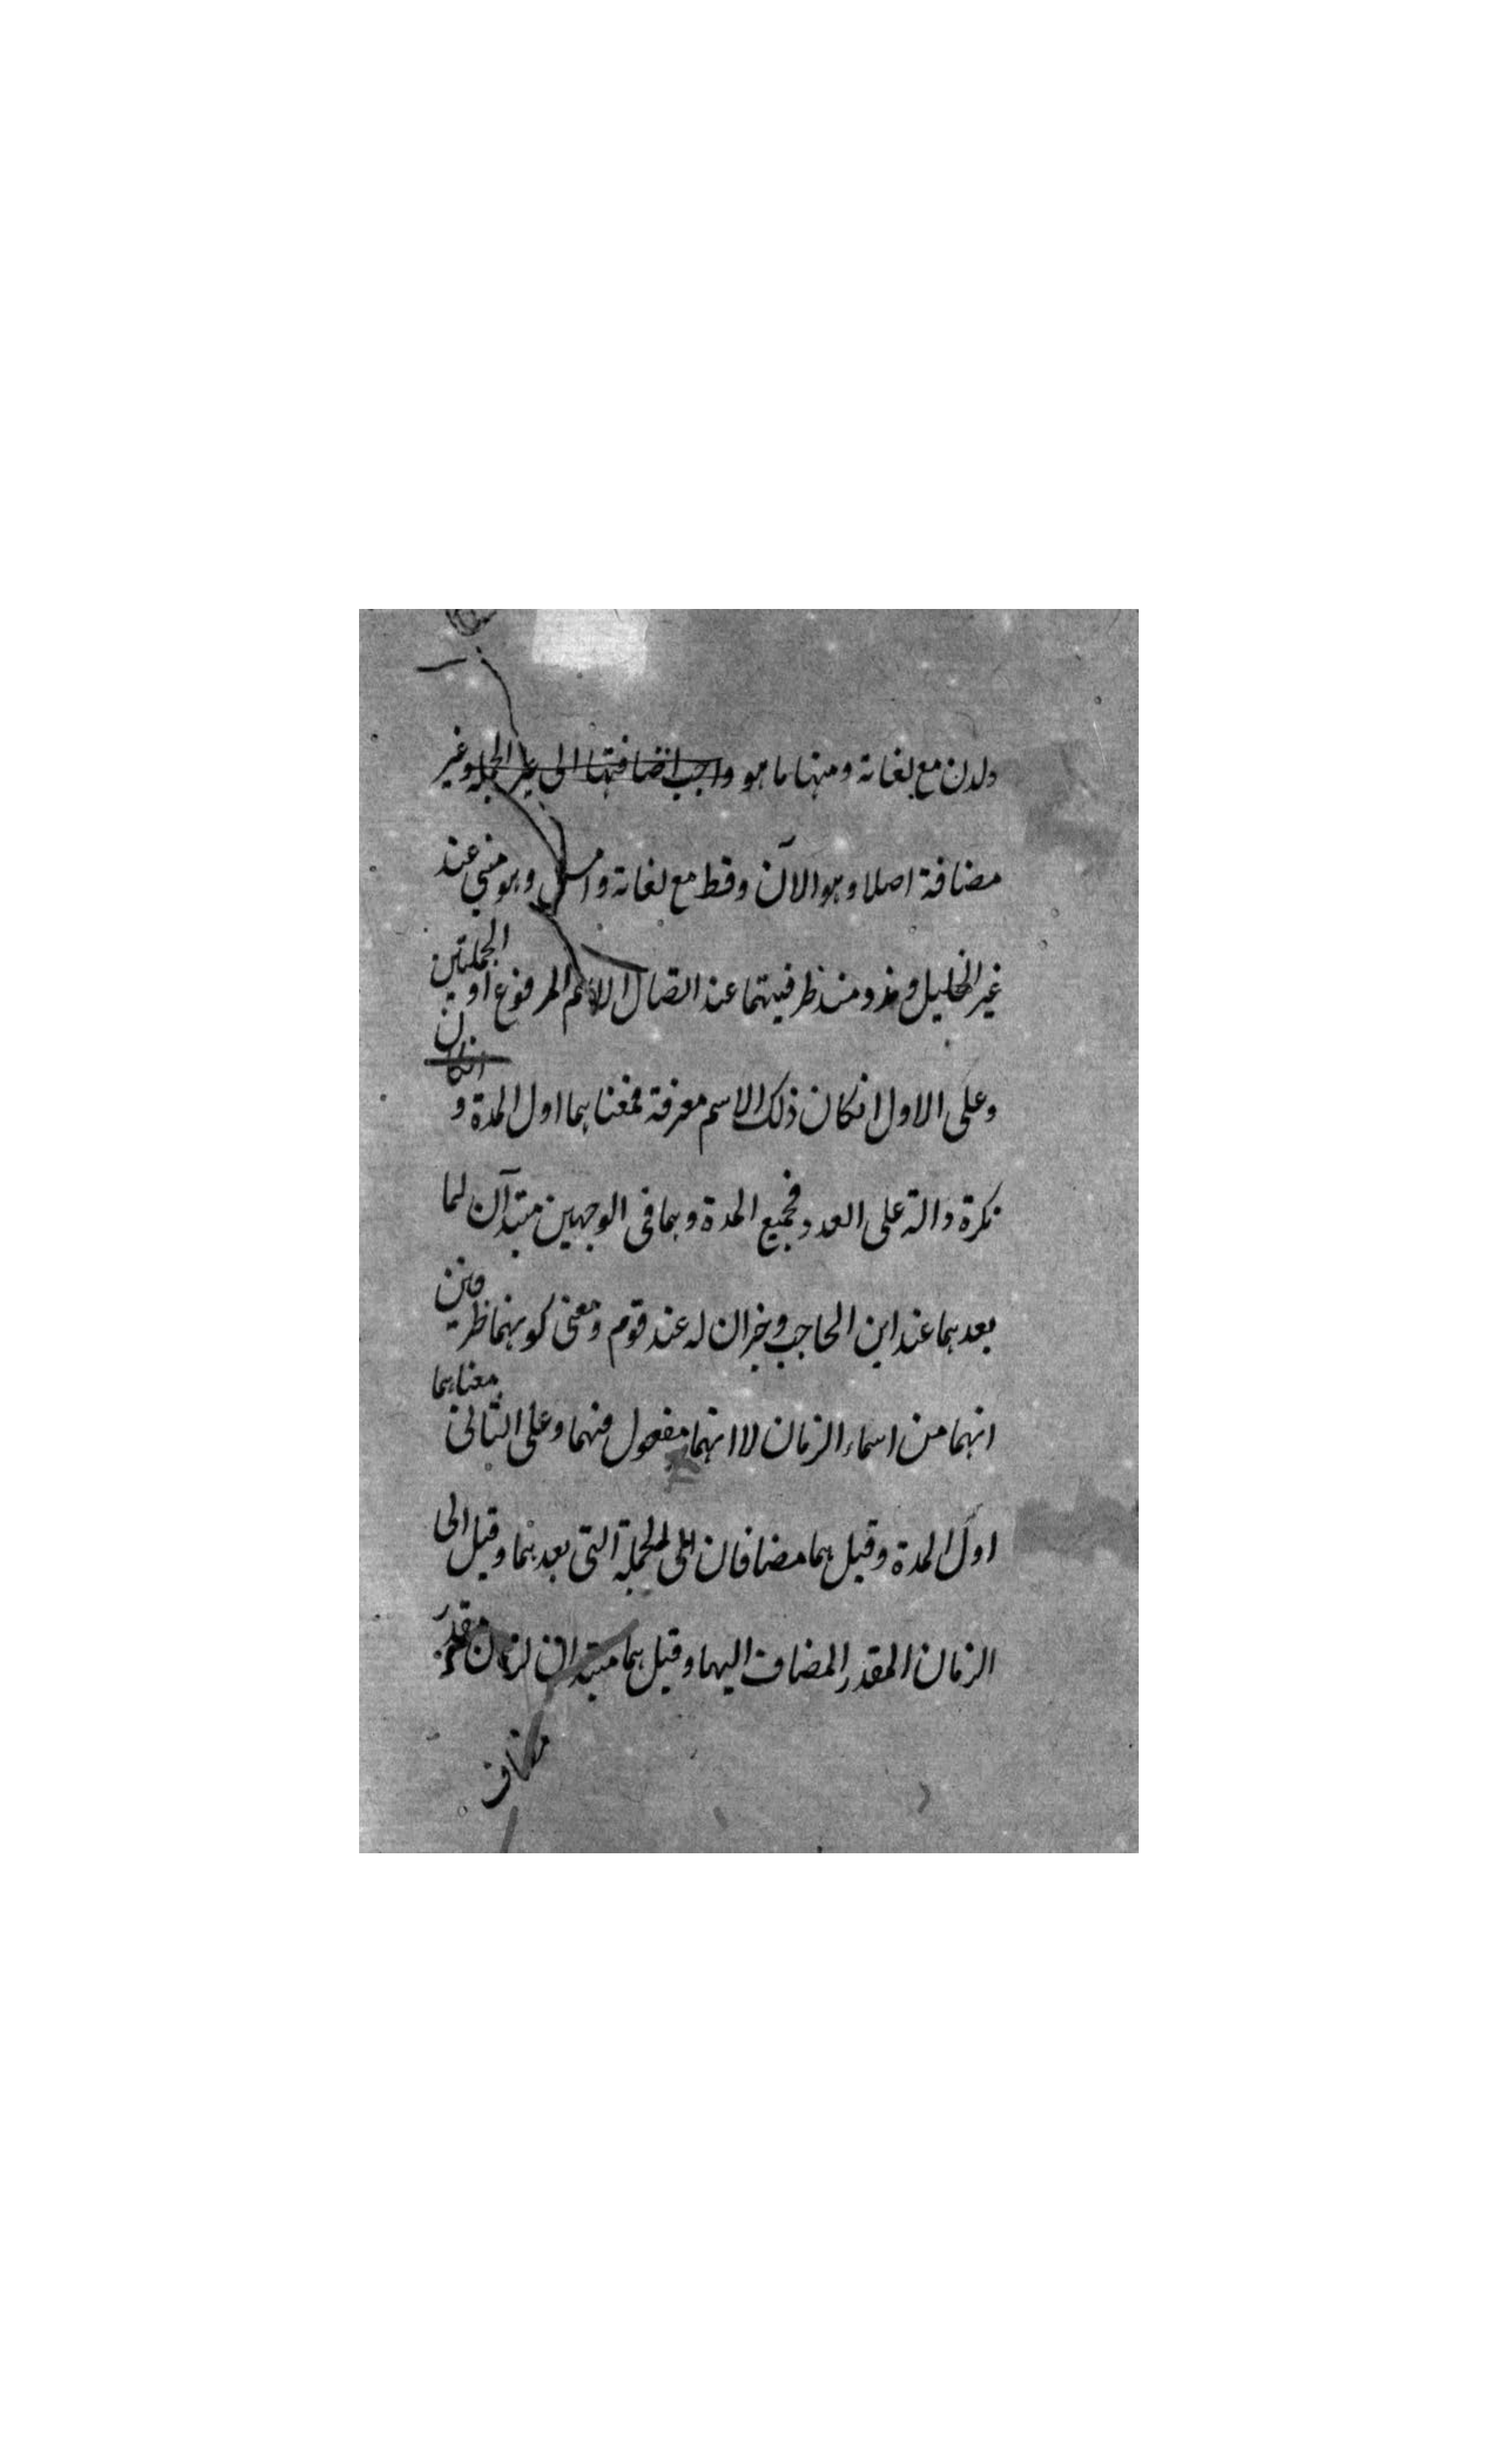 ولدن مع لغاته ومنها ما هو واجب اضافتها الى غير الجملة وغير
مضافة اصلا وهو الآن وقط مع لغاته وامس وهو مبني عند
غير الخليل ومذ ومنذ ظرفيتهما عند اتصال الاسم المرفوع او الجملتين
وعلى الاول انكان ذلك الاسم معرفة فمعناهما اول المدة و انكان
نكرة دالة على العدد فجميع المدة وهما في الوجهين مبتدآن لما
بعدهما عند ابن الحاجب وخبران له عند قوم ومعنى كونهما ظرفين
انهما من اسماء الزمان لا انهما مفعول فيهما وعلى الثاني معناهما
اول المدة وقيل هما مضافان الى الجملة التي بعدهما وقيل الى
الزمان المقدر المضاف اليها وقيل هما مبتدآن لزمان مقدر
مضاف